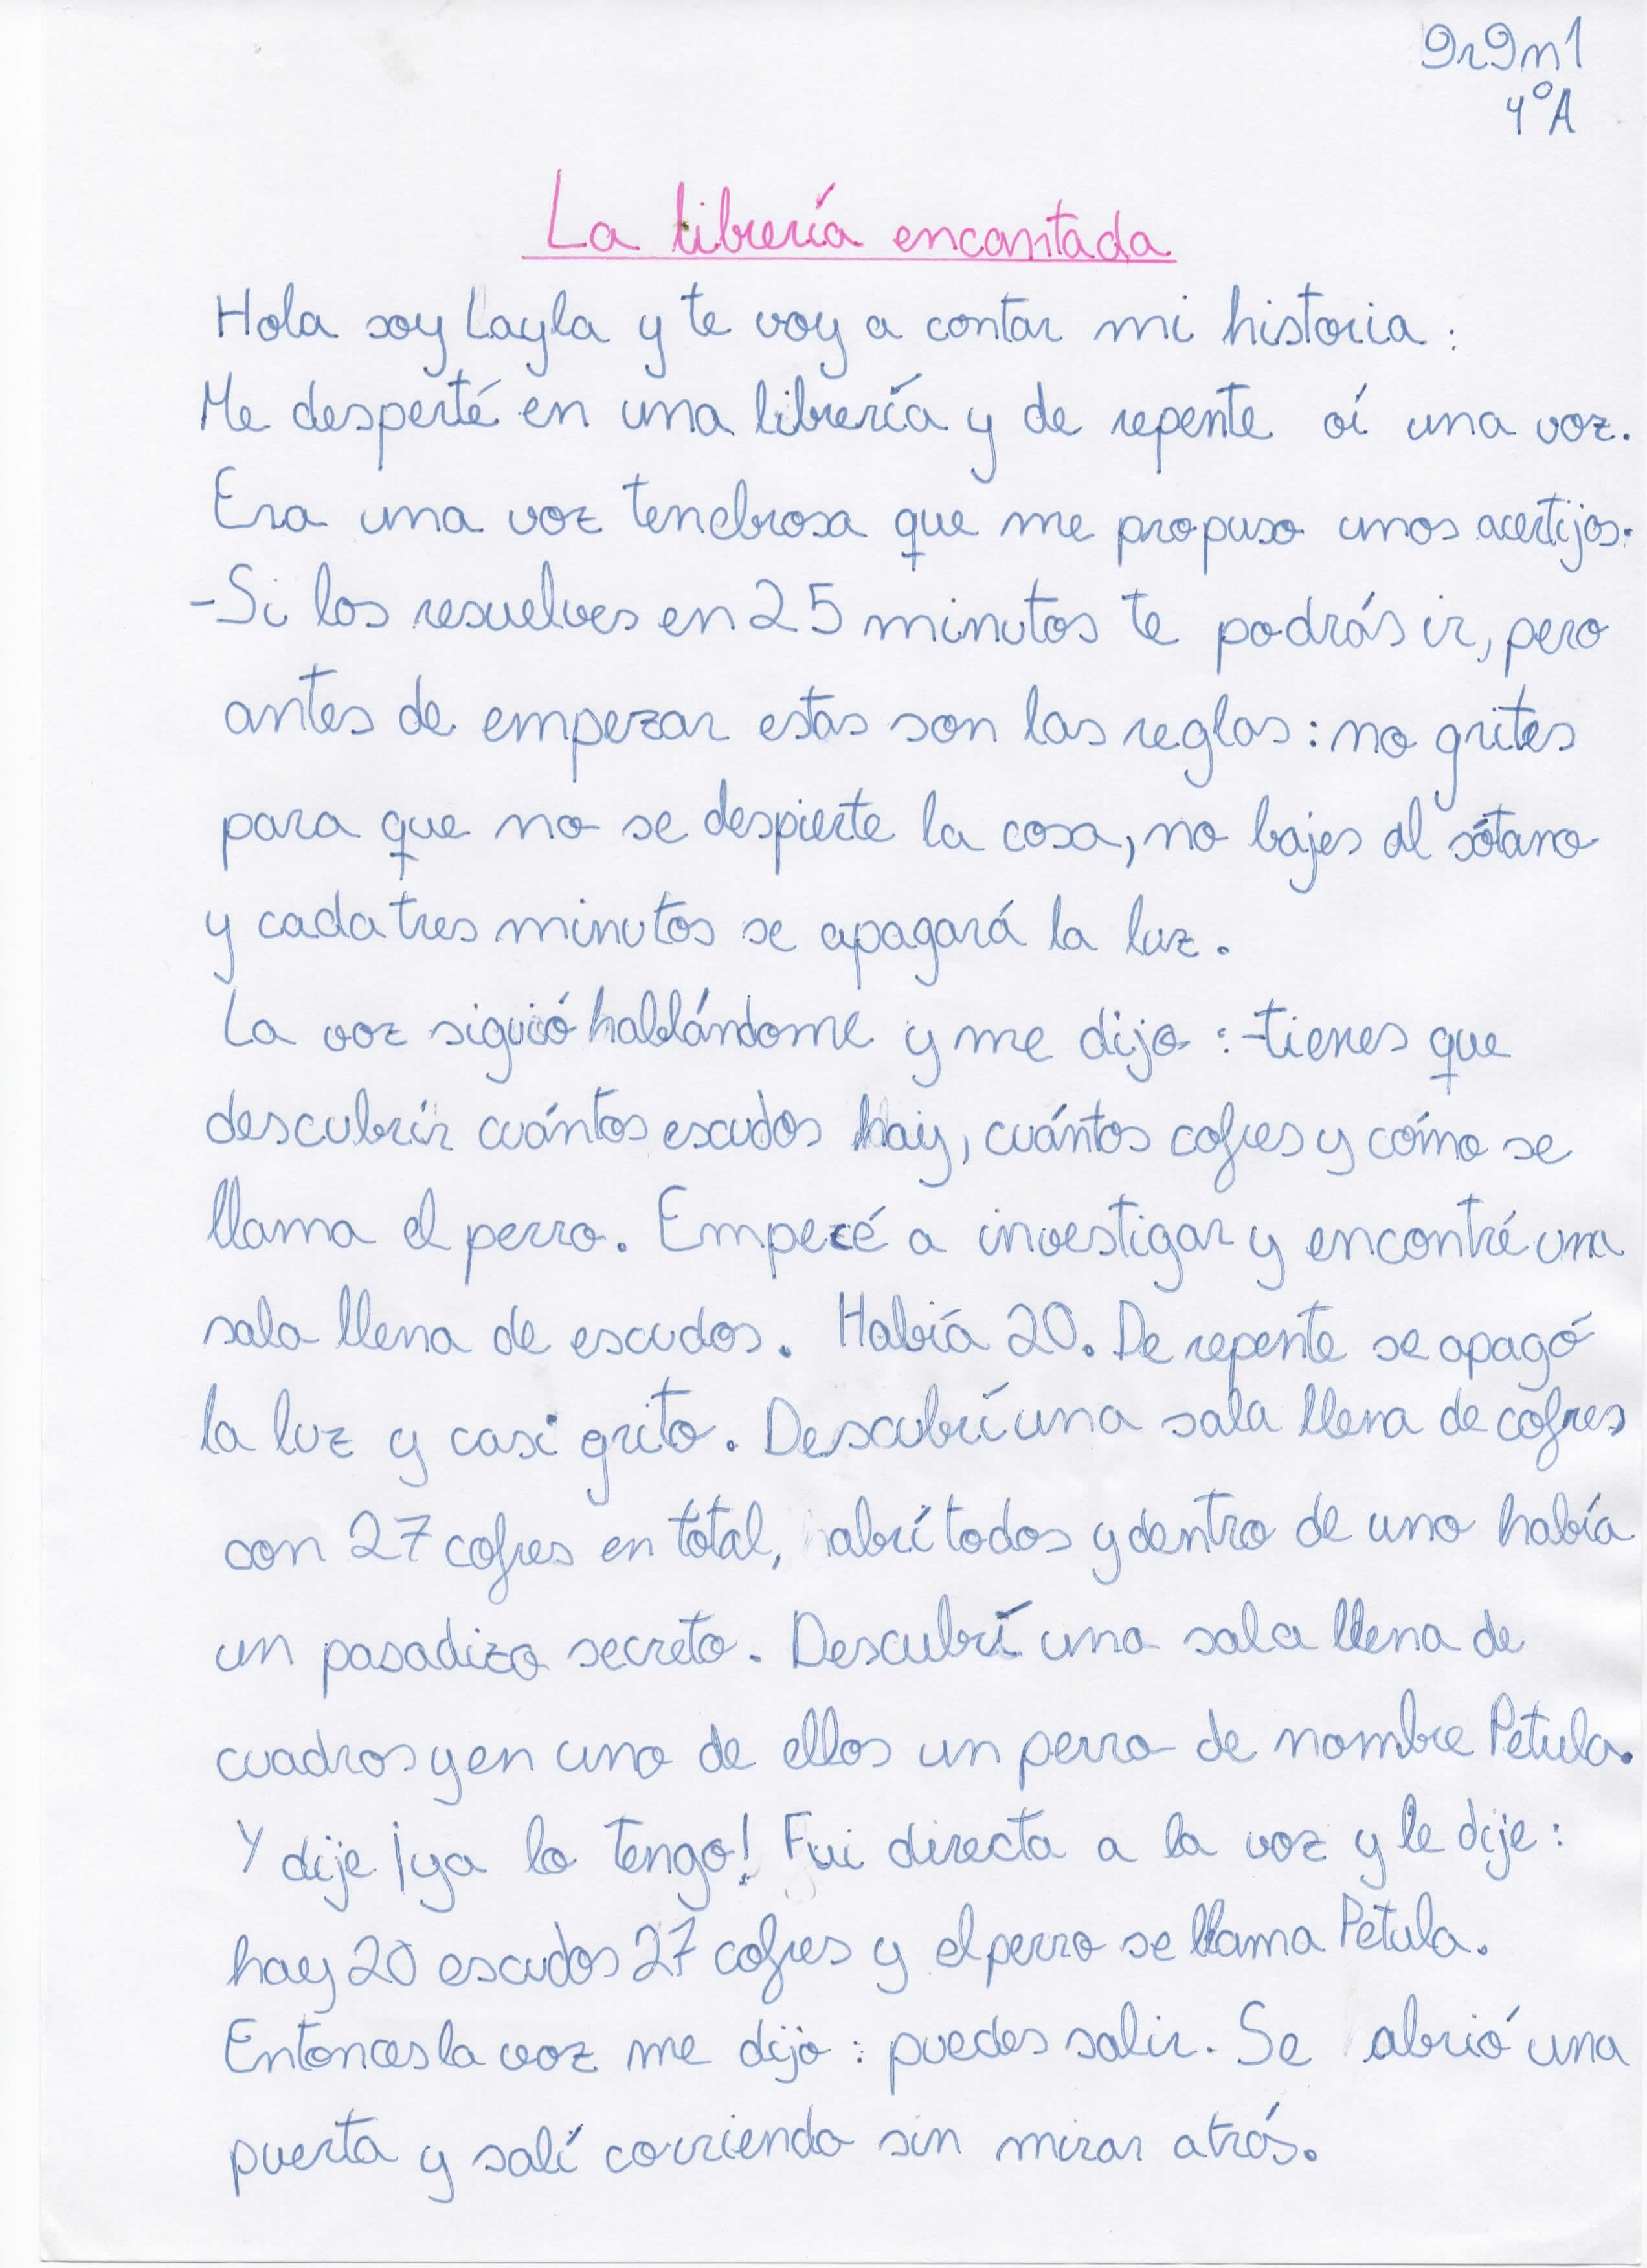 9r9m1
4ºA
La librería encantada
Hola soy Layla y te voy a contar mi historia:
Me desperté en una librería y de repente oí una voz.
Era una voz tenebrosa que me propuso unos acertijos.
-Si los resuelves en 25 minutos te podrás ir, pero
antes de empezar estas son las reglas: no grites
para que no se despierte la cosa, no bajes al sótano
y cada tres minutos se apagará la luz.
La voz siguió hablándome y me dijo: -tienes que
descubrir cuántos escudos hay, cuántos cofres y cómo se
llama el perro. Empecé a investigar y encontré una
sala llena de escudos. Había 20. De repente se apagó
la luz y casi grito. Descubrí una sala llena de cofres
con 27 cofres en total, abrí todos y dentro de uno había
un pasadizo secreto. Descubrí una sala llena de
cuadros y en uno de ellos un perro de nombre Petula.
Y dije ¡ya lo tengo! Fui directa a la voz y le dije:
hay 20 escudos 27 cofres y el perro se llama Petula.
Entonces la voz me dijo: puedes salir. Se abrió una
puerta y salí corriendo sin mirar atrás.